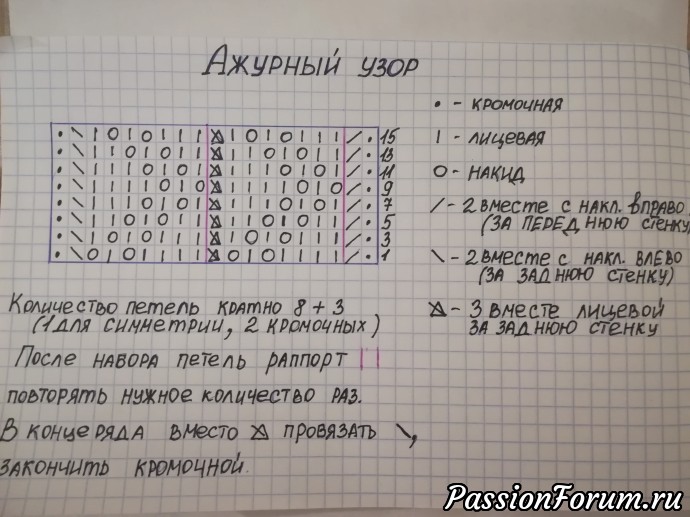 Ажурный узор
• \ I O I O I I I ⟁ I O I O I I I / • 15
• \ I I O I O I I ⟁ I I O I O I I / • 13
• \ I I I O I O I ⟁ I I I O I O I / • 11
• \ I I I I O I O ⟁ I I I I O I O / • 9
• \ I I I O I O I ⟁ I I I O I O I / • 7
• \ I I O I O I I ⟁ I I O I O I I / • 5
• \ I O I O I I I ⟁ I O I O I I I / • 3
• \ O I O I I I I ⟁ O I O I I I I / • 1
• - кромочная
I - лицевая
О - накид
/ - 2 вместе с накл. вправо
(за переднюю стенку)
\ - 2 вместе с накл. влево
(за заднюю стенку)
⟁ - 3 вместе лицевой
за заднюю стенку
Количество петель кратно 8 + 3
(1 для симметрии, 2 кромочных)
После навора петель раппорт | |
повторять нужное количество раз.
В конце ряда вместо ⟁ провязать \,
закончить кромочной.
PassionForum.ru